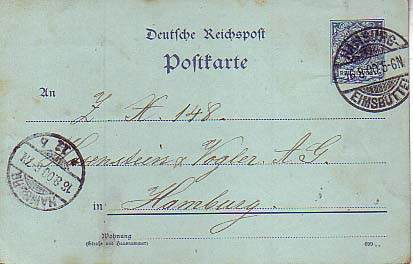 Deutsche Reichspost
Postkarte
HAMBURG
16.8.00.5-6N
EIMSBÜTTEL
An
Z H. 148.
Haasenstein & Vogler A.G.
HAMBURG
16.8.00.6-7N
in Hamburg.
Wohnung
(Straße und Hausnummer)